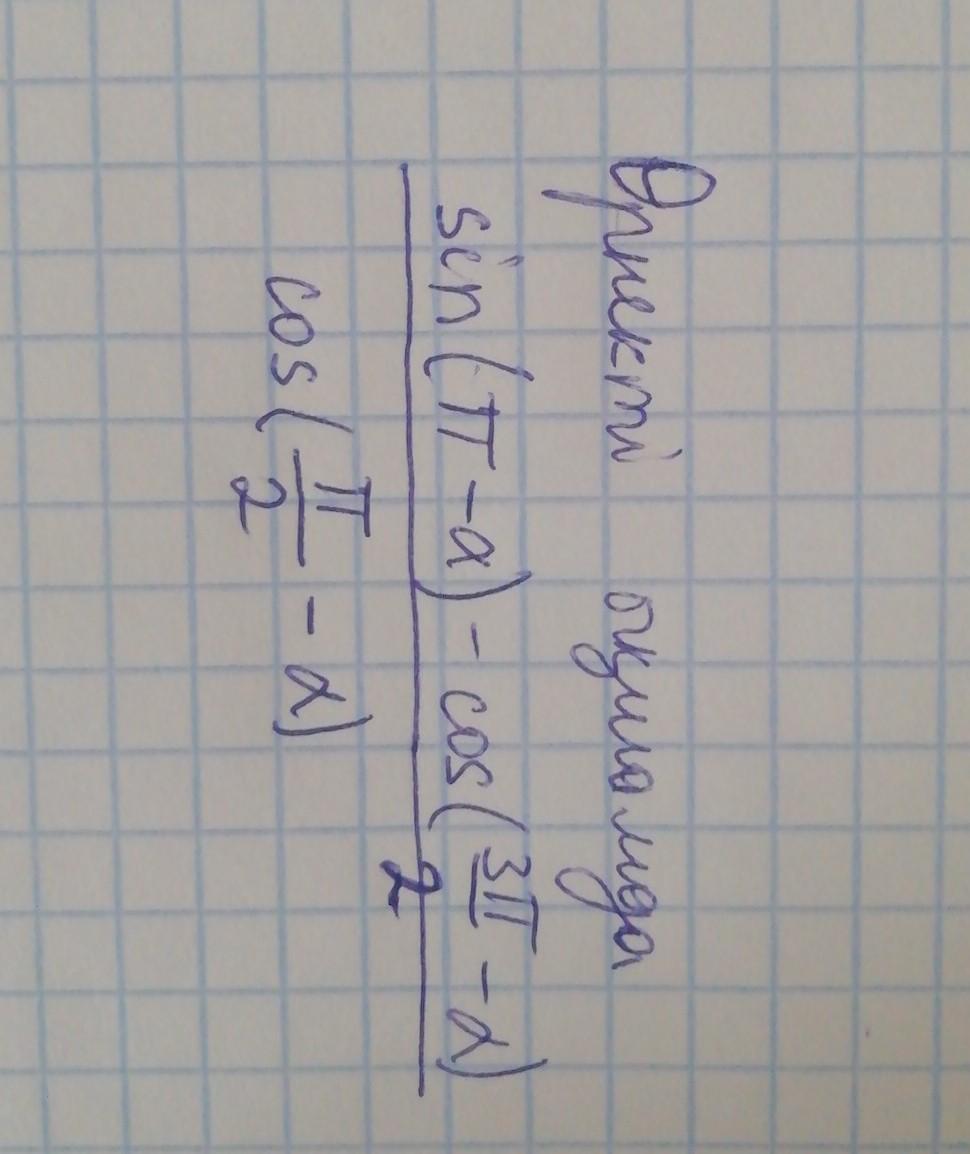 Өрнекті ықшамда
sin(π-α)-cos(3π/2-α)
cos(π/2-α)